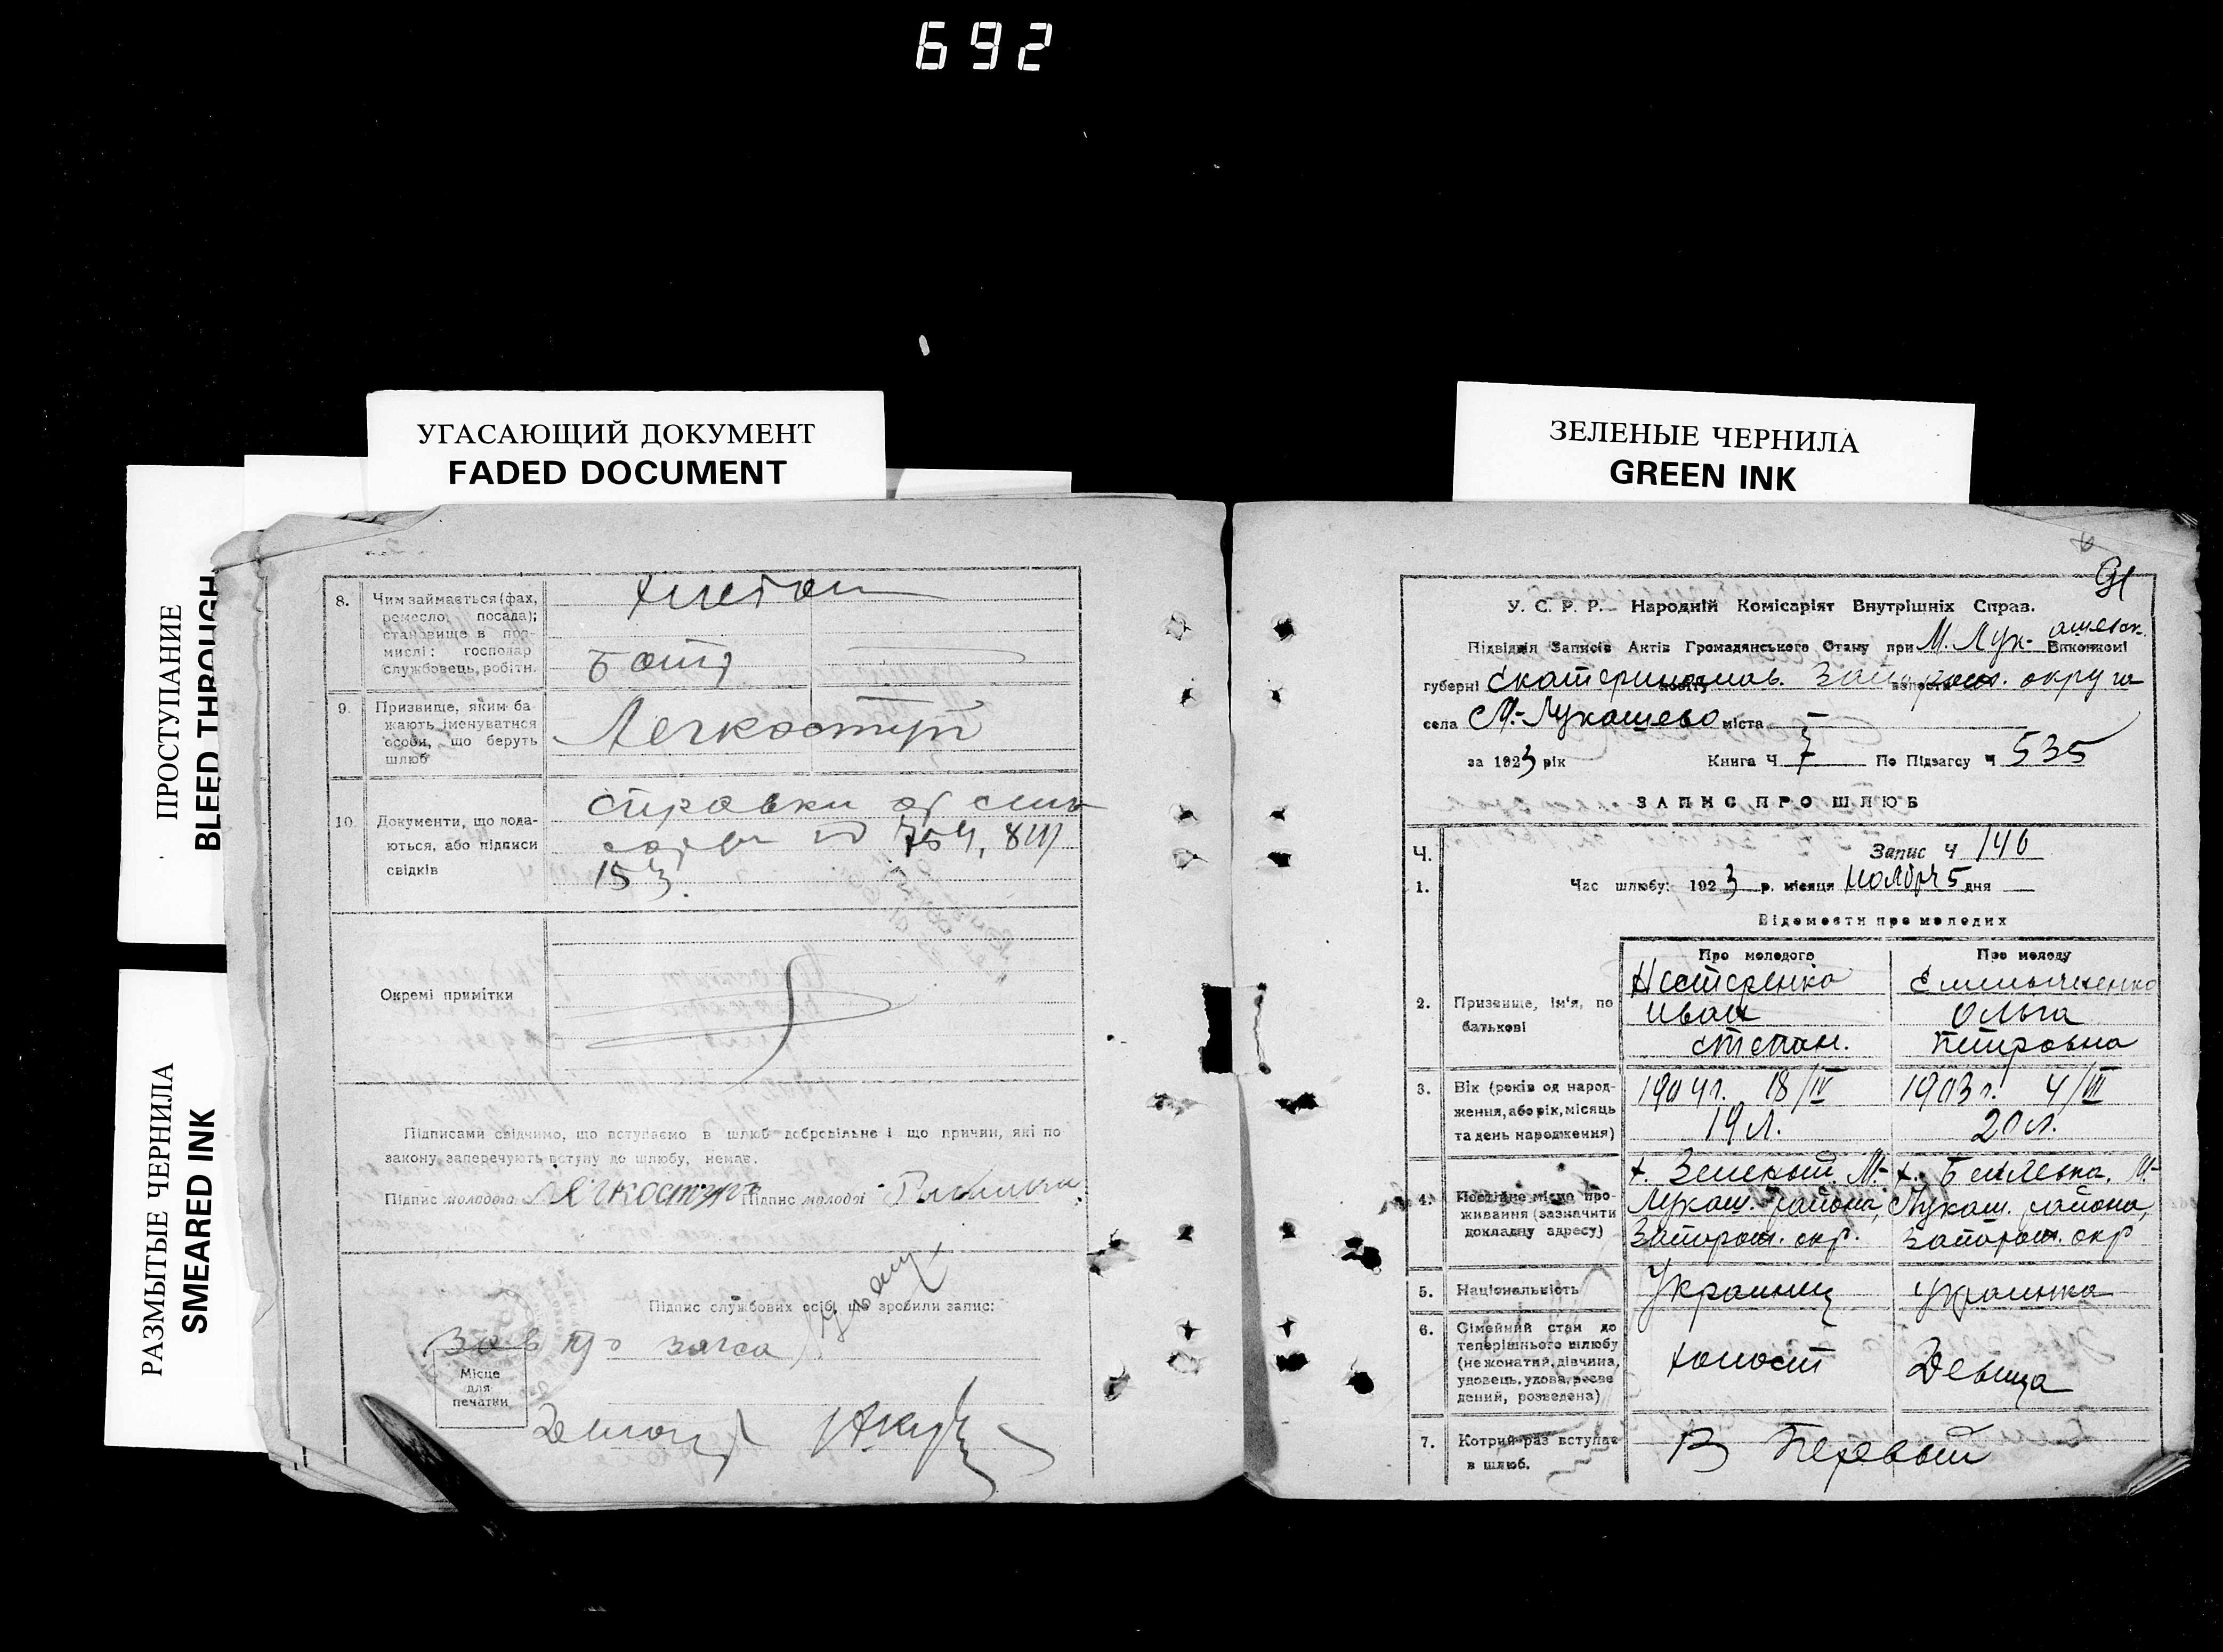 692
УГАСАЮЩИЙ ДОКУМЕНТ
FADED DOCUMENT
ЗЕЛЕНЫЕ ЧЕРНИЛА
GREEN INK
ПРОСТУПАНИЕ
BLEED THROUGH
РАЗМЫТЫЕ ЧЕРНИЛА
SMEARED INK
8. Чим займається (фах,
ремесло, посада);
становище в про-
мислі: господар
службовець, робітн.
9. Призвище, яким ба-
жають іменуватися
особи, що беруть
шлюб
Легкоступ
10. Документи, що пода-
ються, або підписи
свідків
справки
754, 8
153.
Окремі примітки
Підписами свідчимо, що вступаємо в шлюб добровільне і що причин, які по
закону заперечують вступу до шлюбу, немає.
Підпис молодого Легкоступ Підпис молодої
Підпис службових осіб, що зробили запис:
Зав загса
Місце
для
печатки
91
У. С. Р. Р. — Народній Комісаріят Внутрішніх Справ.
Підвідділ Записів Актів Громадянського Стану при М. Лукашевск. Виконкомі
губерні Екатеринослав. Запорож. округа
села М.-Лукашево міста —
за 1923 рік Книга Ч 7 По Підзагсу Ч 535
ЗАПИС ПРО ШЛЮБ
Ч. Запис Ч 146
1. Час шлюбу: 1923 р. місяця ноября 5 дня
Відомости про молодих
Про молодого Про молоду
2. Призвище, ім'я, по
батькові
Нестеренко
Иван
Степан.
Емельяненко
Ольга
Петровна
3. Вік (років од народ-
ження, або рік, місяць
та день народження)
1904 г. 18/IV
19 л.
1903 г. 4/III
20 л.
4. Постійне місце про-
живання (зазначити
докладну адресу)
х. М-
Лукаш. района,
Запорож. окр.
х. М-
Лукаш. района,
Запорож. окр
5. Національність
Украинец украинка
6. Сімейний стан до
теперішнього шлюбу
(не жонатий, дівчина,
удовець, удова, розве
дений, розведена)
холост Девица
7. Котрий раз вступає
в шлюб.
В Первый